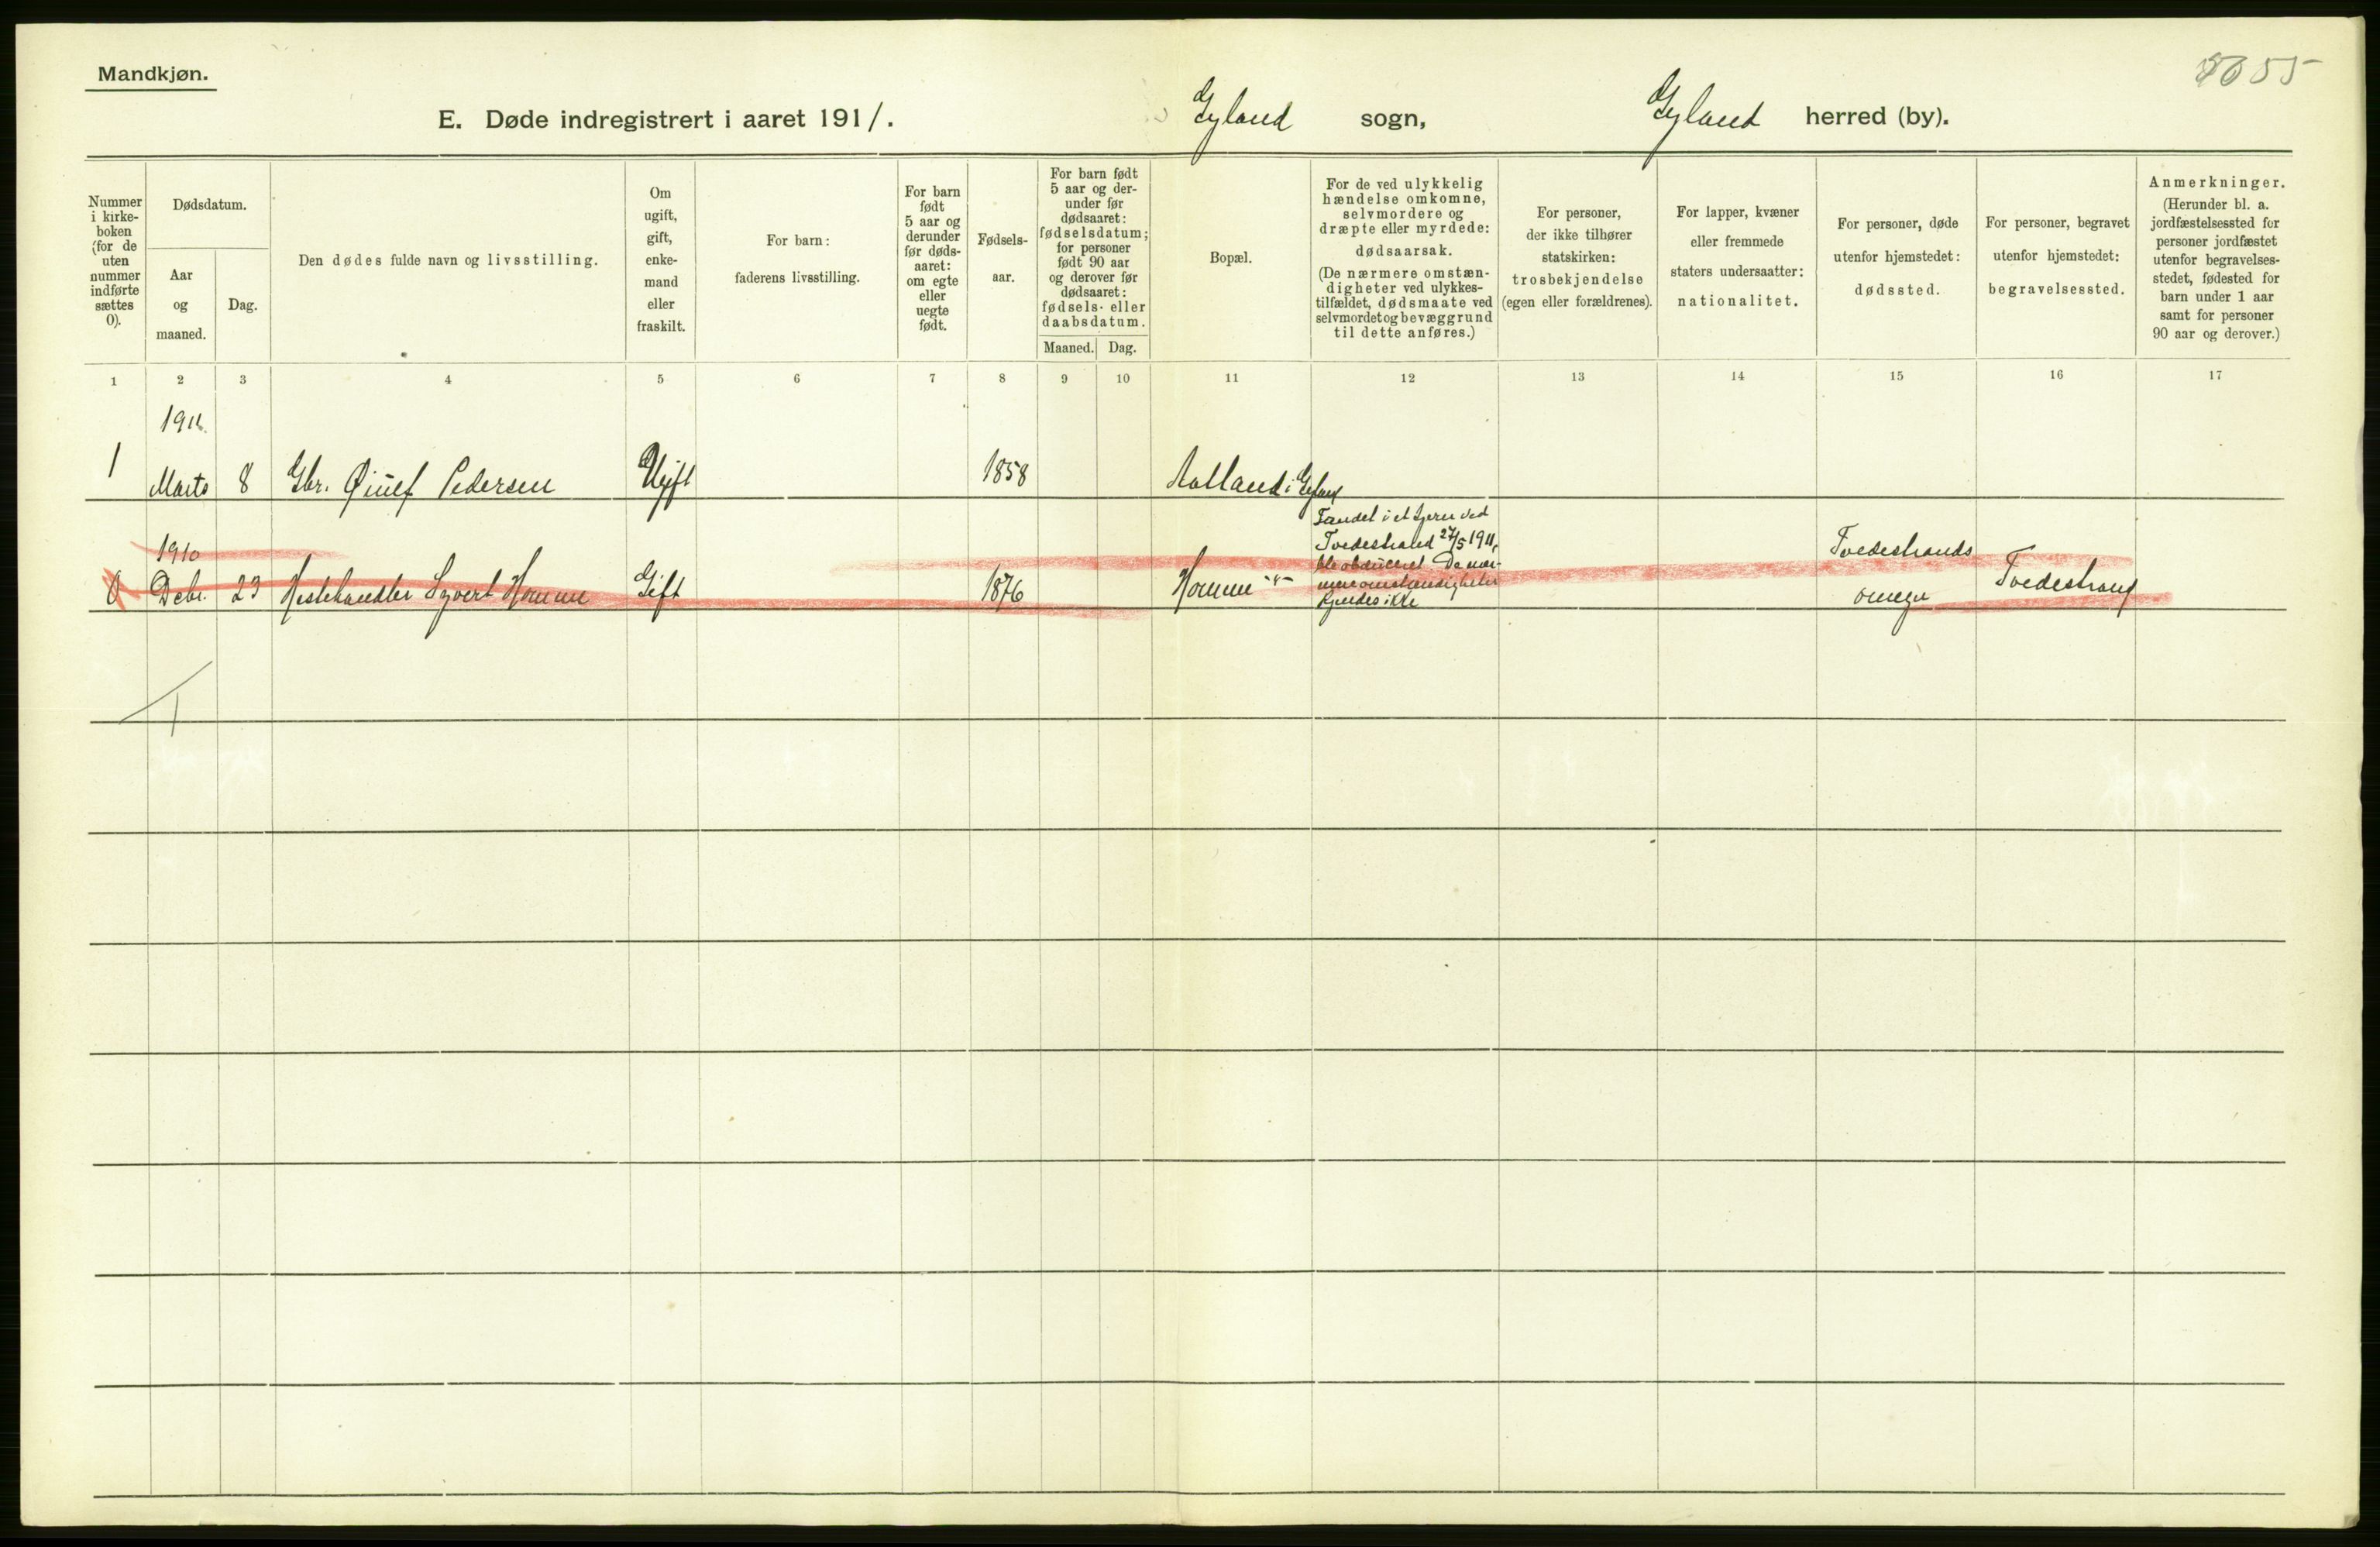 Mandkjøn.
E. Døde indregistrert i aaret 1911.
Gyland sogn,
Gyland herred (by).
Nummer
i kirke-
boken
(for de
uten
nummer
indførte
sættes
0).
Dødsdatum.
Aar
og
maaned.
Dag.
Den dødes fulde navn og livsstilling.
Om
ugift,
gift,
enke-
mand
eller
fraskilt.
For barn:
faderens livsstilling.
For barn
født
5 aar og
derunder
før døds-
aaret:
om egte
eller
uegte
født.
Fødsels-
aar.
For barn født
5 aar og der-
under før
dødsaaret:
fødselsdatum;
for personer
født 90 aar
og derover før
dødsaaret:
fødsels- eller
daabsdatum.
Maaned.
Dag.
Bopæl.
For de ved ulykkelig
hændelse omkomne,
selvmordere og
dræpte eller myrdede:
dødsaarsak.
(De nærmere omstæn-
digheter ved ulykkes-
tilfældet, dødsmaate ved
selvmordet og bevæggrund
til dette anføres.)
For personer,
der ikke tilhører
statskirken:
trosbekjendelse
(egen eller forældrenes).
For lapper, kvæner
eller fremmede
staters undersaatter:
nationalitet.
For personer, døde
utenfor hjemstedet:
dødssted.
For personer, begravet
utenfor hjemstedet:
begravelsessted.
Anmerkninger.
(Herunder bl. a.
jordfæstelsessted for
personer jordfæstet
utenfor begravelses-
stedet, fødested for
barn under 1 aar
samt for personer
90 aar og derover.)
1 2 3 4 5 6 7 8 9 10 11 12 13 14 15 16 17
1911.
1 Marts 8 Gbr. Pedersen Ugift 1858 i Gyland
1910
0 Debr. 23 Hestehandler Syvert Homme Gift 1876 Homme -"-
Fundet i et tjern ved
Tvedestrand 27/5 1911,
blev obduceret. De nær-
mere omstændigheter
kjendes ikke
Tvedestrands
omegn
Tvedestrand